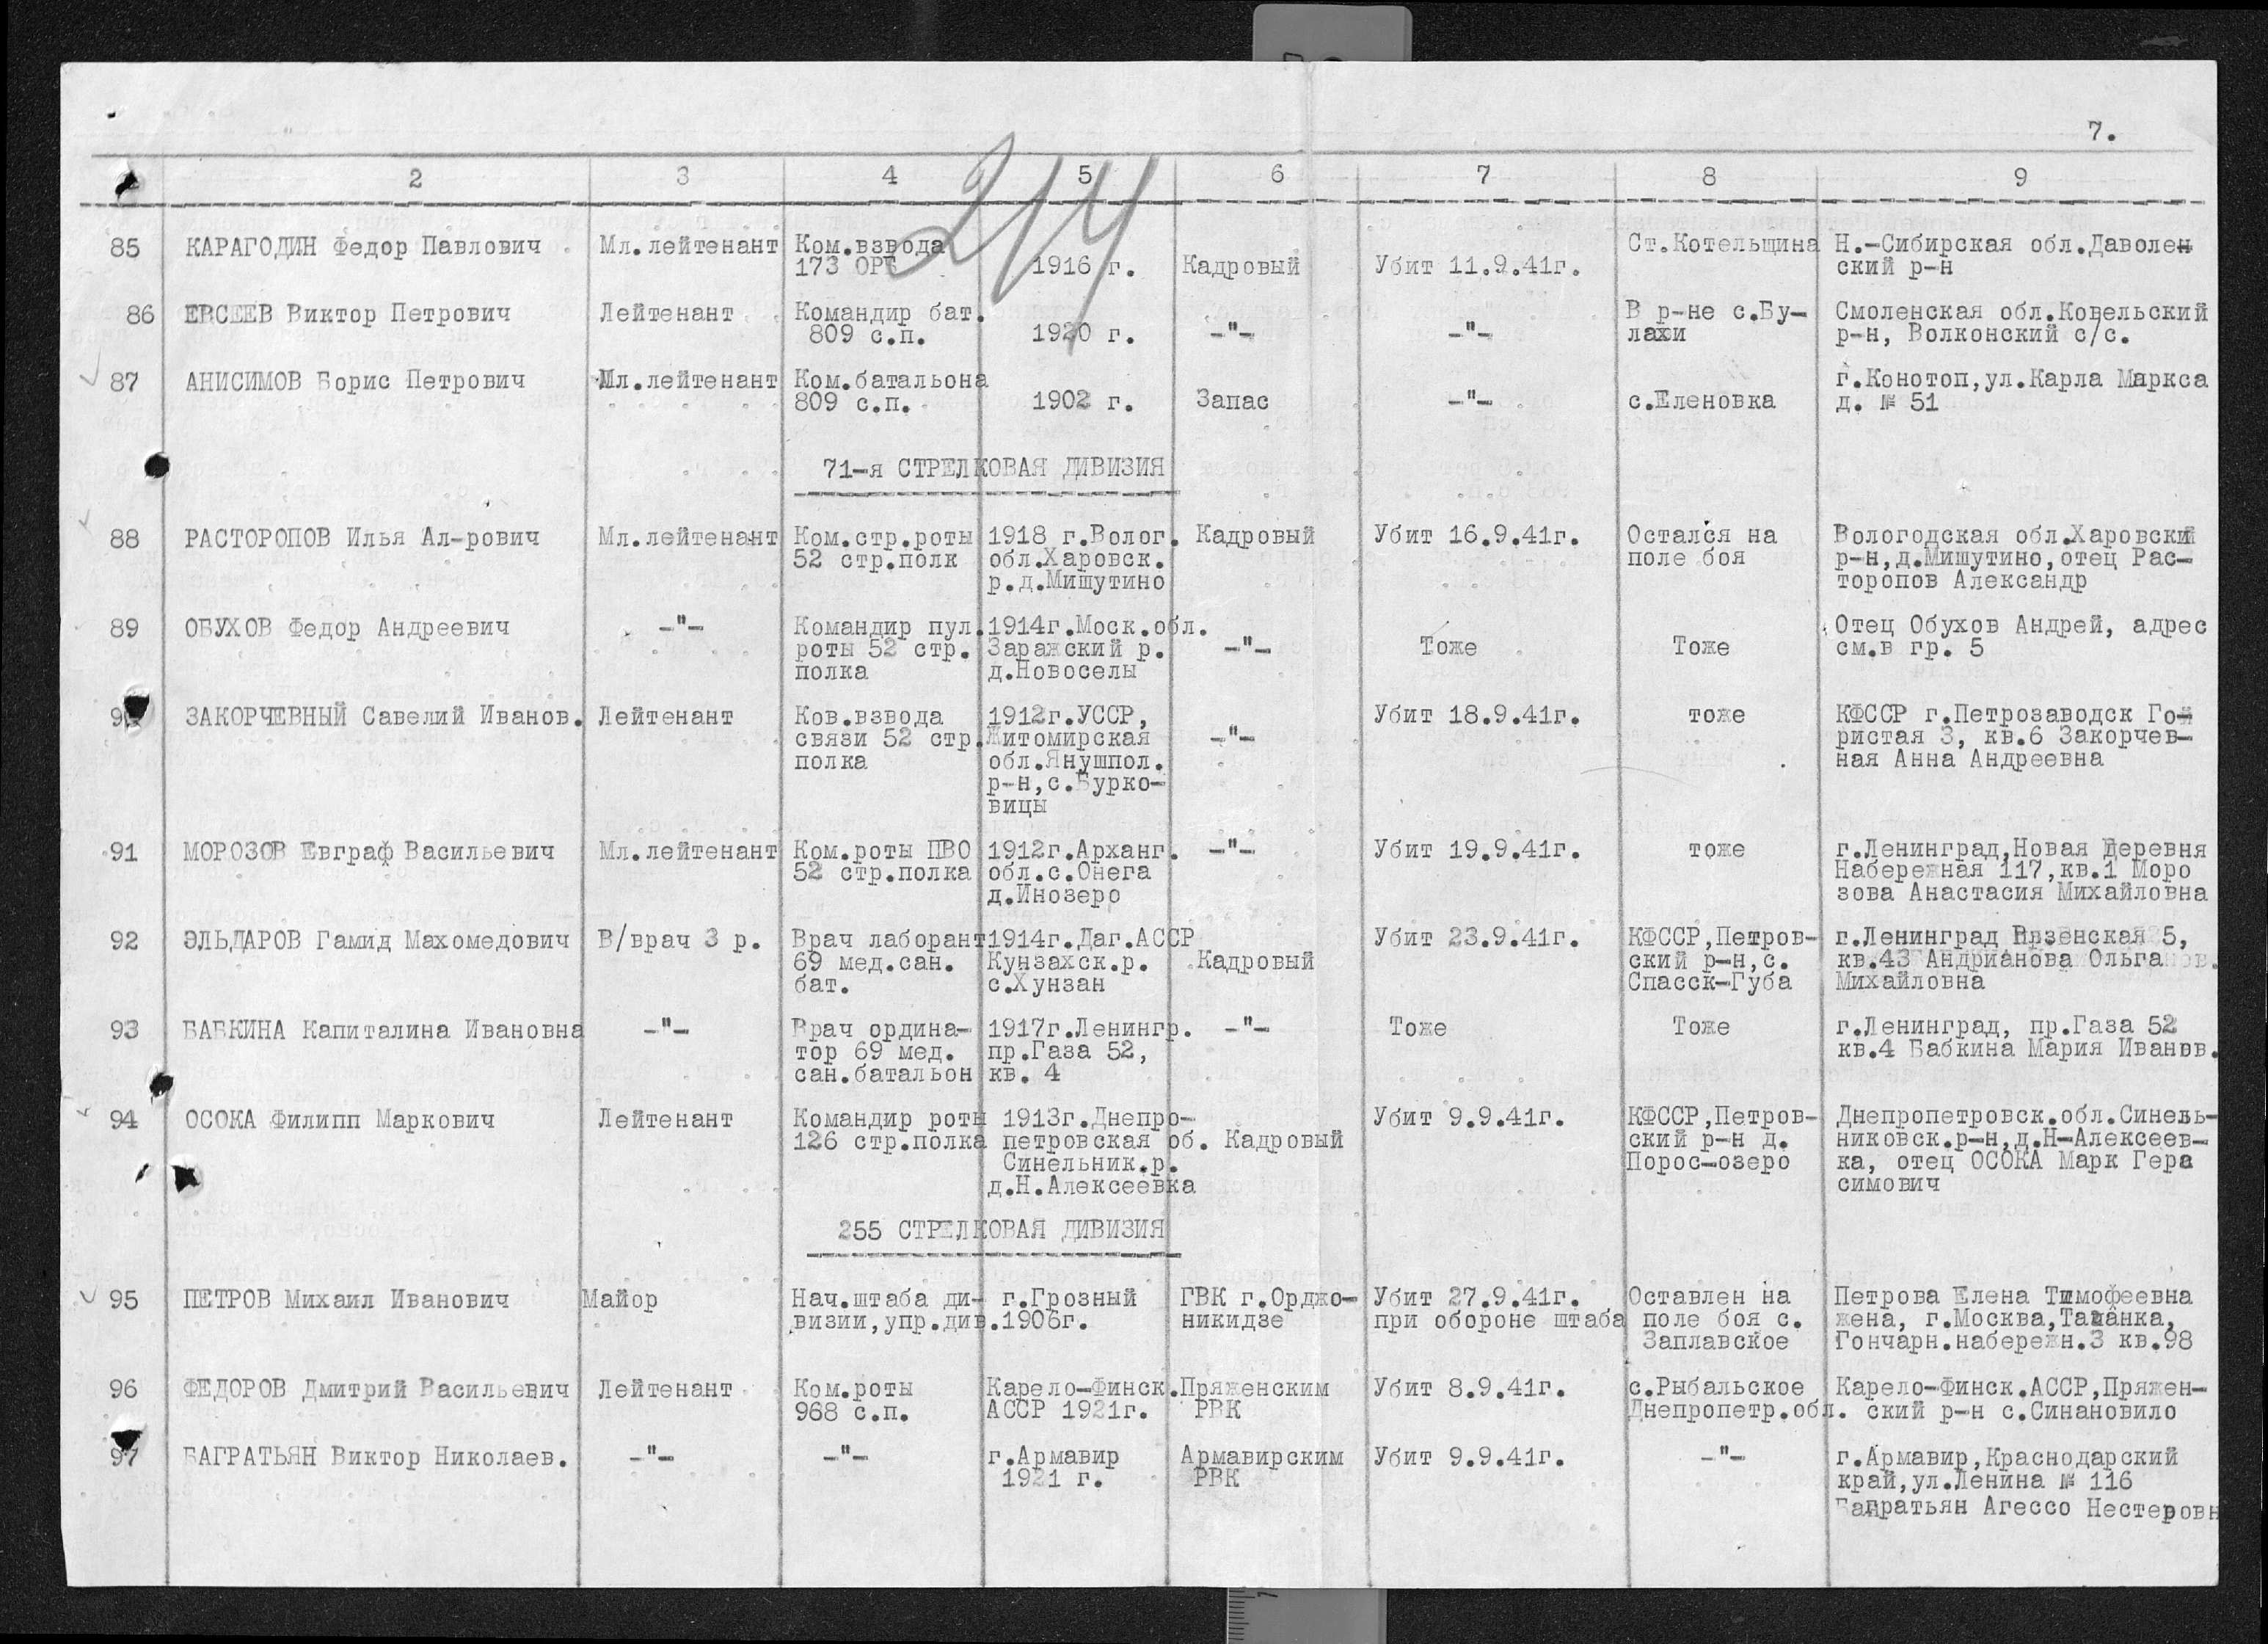 7.
214
2 3 4 5 6 7 8 9
85 КАРАГОДИН Федор Павлович Мл.лейтенант Ком.взвода Ст.Котельщина Н.-Сибирская обл.Даволен
173 ОРБ 1916 г. Кадровый Убит 11.9.41г. ский р-н
86 ЕВСЕЕВ Виктор Петрович Лейтенант Командир бат. В р-не с.Бу- Смоленская обл.Ковельский
809 с.п. 1920 г. -"- -"- лахи р-н, Волконский с/с.
87 АНИСИМОВ Борис Петрович Мл.лейтенант Ком.батальона г.Конотоп,ул.Карла Маркса
809 с.п. 1902 г. Запас -"- с.Еленовка д. № 51
71-я СТРЕЛКОВАЯ ДИВИЗИЯ
88 РАСТОРОПОВ Илья Ал-рович Мл.лейтенант Ком.стр.роты 1918 г.Волог. Кадровый Убит 16.9.41г. Остался на Вологодская обл.Харовский
52 стр.полк обл.Харовск. поле боя р-н,д.Мишутино,отец Рас-
р.д.Мишутино торопов Александр
89 ОБУХОВ Федор Андреевич -"- Командир пул. 1914г.Моск.обл. Отец Обухов Андрей, адрес
роты 52 стр. Заражский р. -"- Тоже Тоже см.в гр. 5
полка д.Новоселы
90 ЗАКОРЧЕВНЫЙ Савелий Иванов. Лейтенант Ков.взвода 1912г.УССР, Убит 18.9.41г. тоже КФССР г.Петрозаводск Го-
связи 52 стр. Житомирская -"- ристая 3, кв.6 Закорчев-
полка обл.Янушпол. ная Анна Андреевна
р-н,с.Бурко-
вицы
91 МОРОЗОВ Евграф Васильевич Мл.лейтенант Ком.роты ПВО 1912г.Арханг. -"- Убит 19.9.41г. тоже г.Ленинград,Новая Деревня
52 стр.полка обл.с.Онега Набережная 117,кв.1 Моро
д.Инозеро зова Анастасия Михайловна
92 ЭЛЬДАРОВ Гамид Махомедович В/врач 3 р. Врач лаборант 1914г.Даг.АССР Убит 23.9.41г. КФССР,Петров- г.Ленинград 5,
69 мед.сан. Кунзахск.р. Кадровый ский р-н,с. кв.43 Андрианова Ольга
бат. с.Хунзан Спасск-Губа Михайловна
93 БАБКИНА Капиталина Ивановна -"- Врач ордина- 1917г.Ленингр. -"- Тоже Тоже г.Ленинград, пр.Газа 52
тор 69 мед. пр.Газа 52, кв.4 Бабкина Мария Иванов.
сан.батальон кв. 4
94 ОСОКА Филипп Маркович Лейтенант Командир роты 1913г.Днепро- Убит 9.9.41г. КФССР,Петров- Днепропетровск.обл.Синель-
126 стр.полка петровская об. Кадровый ский р-н д. никовск.р-н,д.Н-Алексеев-
Синельник.р. Порос-озеро ка, отец ОСОКА Марк Гера
д.Н.Алексеевка симович
255 СТРЕЛКОВАЯ ДИВИЗИЯ
95 ПЕТРОВ Михаил Иванович Майор Нач.штаба ди- г.Грозный ГВК г.Орджо- Убит 27.9.41г. Оставлен на Петрова Елена Тимофеевна
визии,упр.див. 1906г. никидзе при обороне штаба поле боя с. жена, г.Москва,Таганка,
Заплавское Гончарн.набережн.3 кв.98
96 ФЕДОРОВ Дмитрий Васильевич Лейтенант Ком.роты Карело-Финск. Пряженским Убит 8.9.41г. с.Рыбальское Карело-Финск.АССР,Пряжен-
968 с.п. АССР 1921г. РВК Днепропетр.обл. ский р-н с.Синановило
97 БАГРАТЬЯН Виктор Николаев. -"- -"- г.Армавир Армавирским Убит 9.9.41г. -"- г.Армавир,Краснодарский
1921 г. РВК край,ул.Ленина № 116
Багратьян Агессо Нестеровн